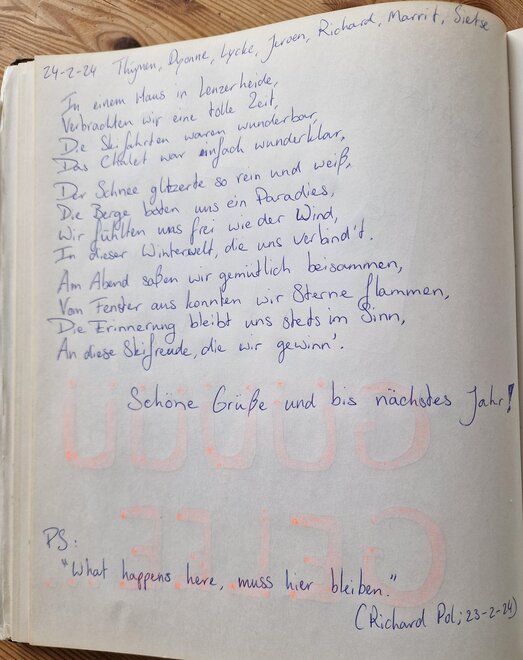 24-2-24 Thijmen, Dyonne, Lycke, Jeroen, Richard, Marrit, Sietse
In einem Haus in Lenzerheide,
Verbrachten wir eine tolle Zeit,
Die Skifahrten waren wunderbar,
Das Chalet war einfach wunderklar,
Der Schnee glitzerte so rein und weiß,
Die Berge boten uns ein Paradies,
Wir fühlten uns frei wie der Wind,
In dieser Winterwelt, die uns verbind't.
Am Abend saßen wir gemütlich beisammen,
Von Fenster aus konnten wir Sterne flammen,
Die Erinnerung bleibt uns stets im Sinn,
An diese Skifreude, die wir gewinn'.
Schöne Grüße und bis nächstes Jahr!
PS:
"What happens here, muss hier bleiben."
(Richard Pol; 23-2-24)